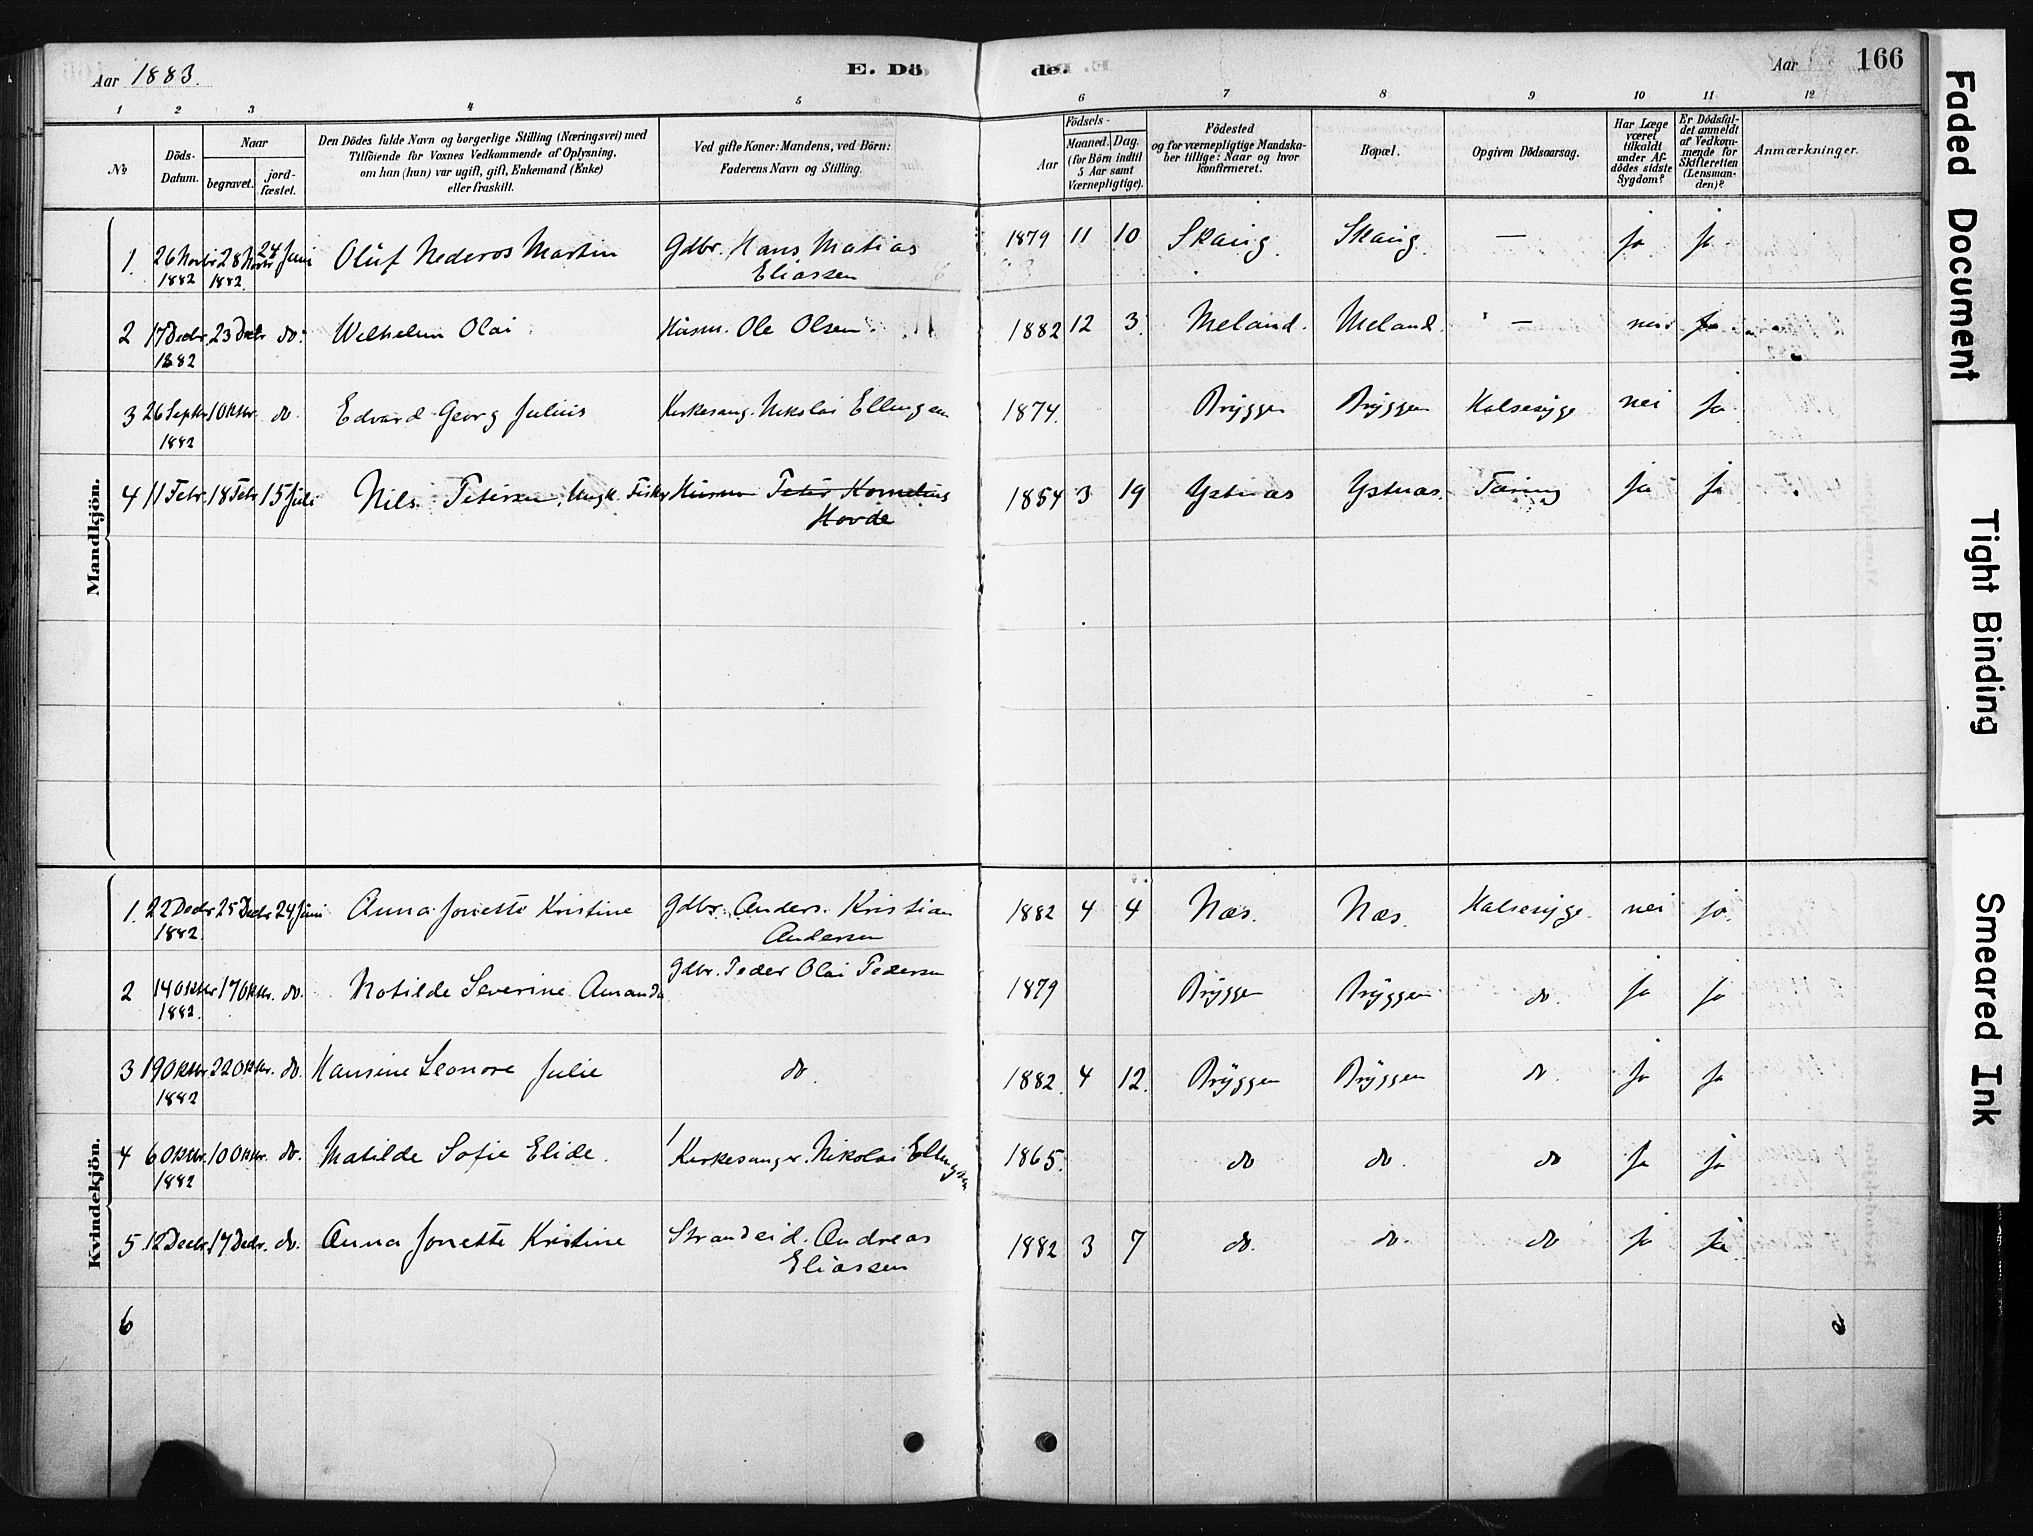 Aar 1883.
E. Döde.
Aar
166
1 2 3 4 5 6 7 8 9 10 11 12
No
Döds-Datum.
Naar
begravet.
jordfæstet.
Den Dödes fulde Navn og borgerlige Stilling (Næringsvei) med
Tilföiende for Voxnes Vedkommende af Oplysning,
om han (hun) var ugift, gift, Enkemand (Enke)
eller fraskilt.
Ved gifte Koner: Mandens, ved Börn:
Faderens Navn og Stilling.
Födsels-
Aar
Maaned. Dag.
(for Börn indtil
5 Aar samt
Værnepligtige).
Födested
og for værnepligtige Mandska-
ber tillige: Naar og hvor
konfirmeret.
Bopæl.
Opgiven Dödsaarsag.
Har Læge
været
tilkaldt
under Af-
dödes sidste
Sygdom?
Er Dödsfal-
det anmeldt
af Vedkom-
mende for
Skifteretten
(Lensman-
den)?
Anmærkninger.
Mandkjön.
1. 26 Novbr 28 Novbr 24 Juni Oluf Nederos Martin Gdbr. Hans Matias 1879 11 10 Skaug. Skaug. — ja ja
1882 1882 Eliassen
2 17 Decbr. 23 Decbr do. Wilhelm Olai Husm. Ole Olsen. 1882 12 3. Meland. Meland. — nei ja
1882
3 26 Septbr. 1 Oktbr. do. Edvard Georg Julius Kirkesang. Nikolai Ellingsen 1874. Bryggen Bryggen Halsesyge nei ja
1882
4 11 Febr. 18 Febr. 15 Juli Nils Petersen, Ungk. Fisker Husm Peter Kornelius 1854 3 19 Ystnæs Ystnæs. Tæring ja ja
Hovde
Kvindekjön.
1. 22 Decbr 25 Decbr 24 Juni Anna Jonette Kristine Gdbr. Anders Kristian 1882 4 4 Næs. Næs. Halsesyge. nei ja.
1882. Andersen
2 14 Oktbr 17 Oktbr. do. Matilde Severine Amanda Gdbr. Peder Olai Pedersen 1879 Bryggen Bryggen do. ja ja
1882.
3 19 Oktbr. 22 Oktbr. do. Hansine Leonore Julie do. 1882. 4 12. Bryggen Bryggen do. ja ja
1882
4 6 Oktbr. 10 Oktbr. do. Matilde Sofie Elide. Kirkesanger. Nikolai Ellingsen 1865. do do. do ja ja
1882
5 12 Decbr. 17 Decbr. do. Anna Jonette Kristine Strandsid. Andreas 1882 3 7 do. do. do ja ja
Eliassen
6
Faded Document
Tight Binding
Smeared Ink